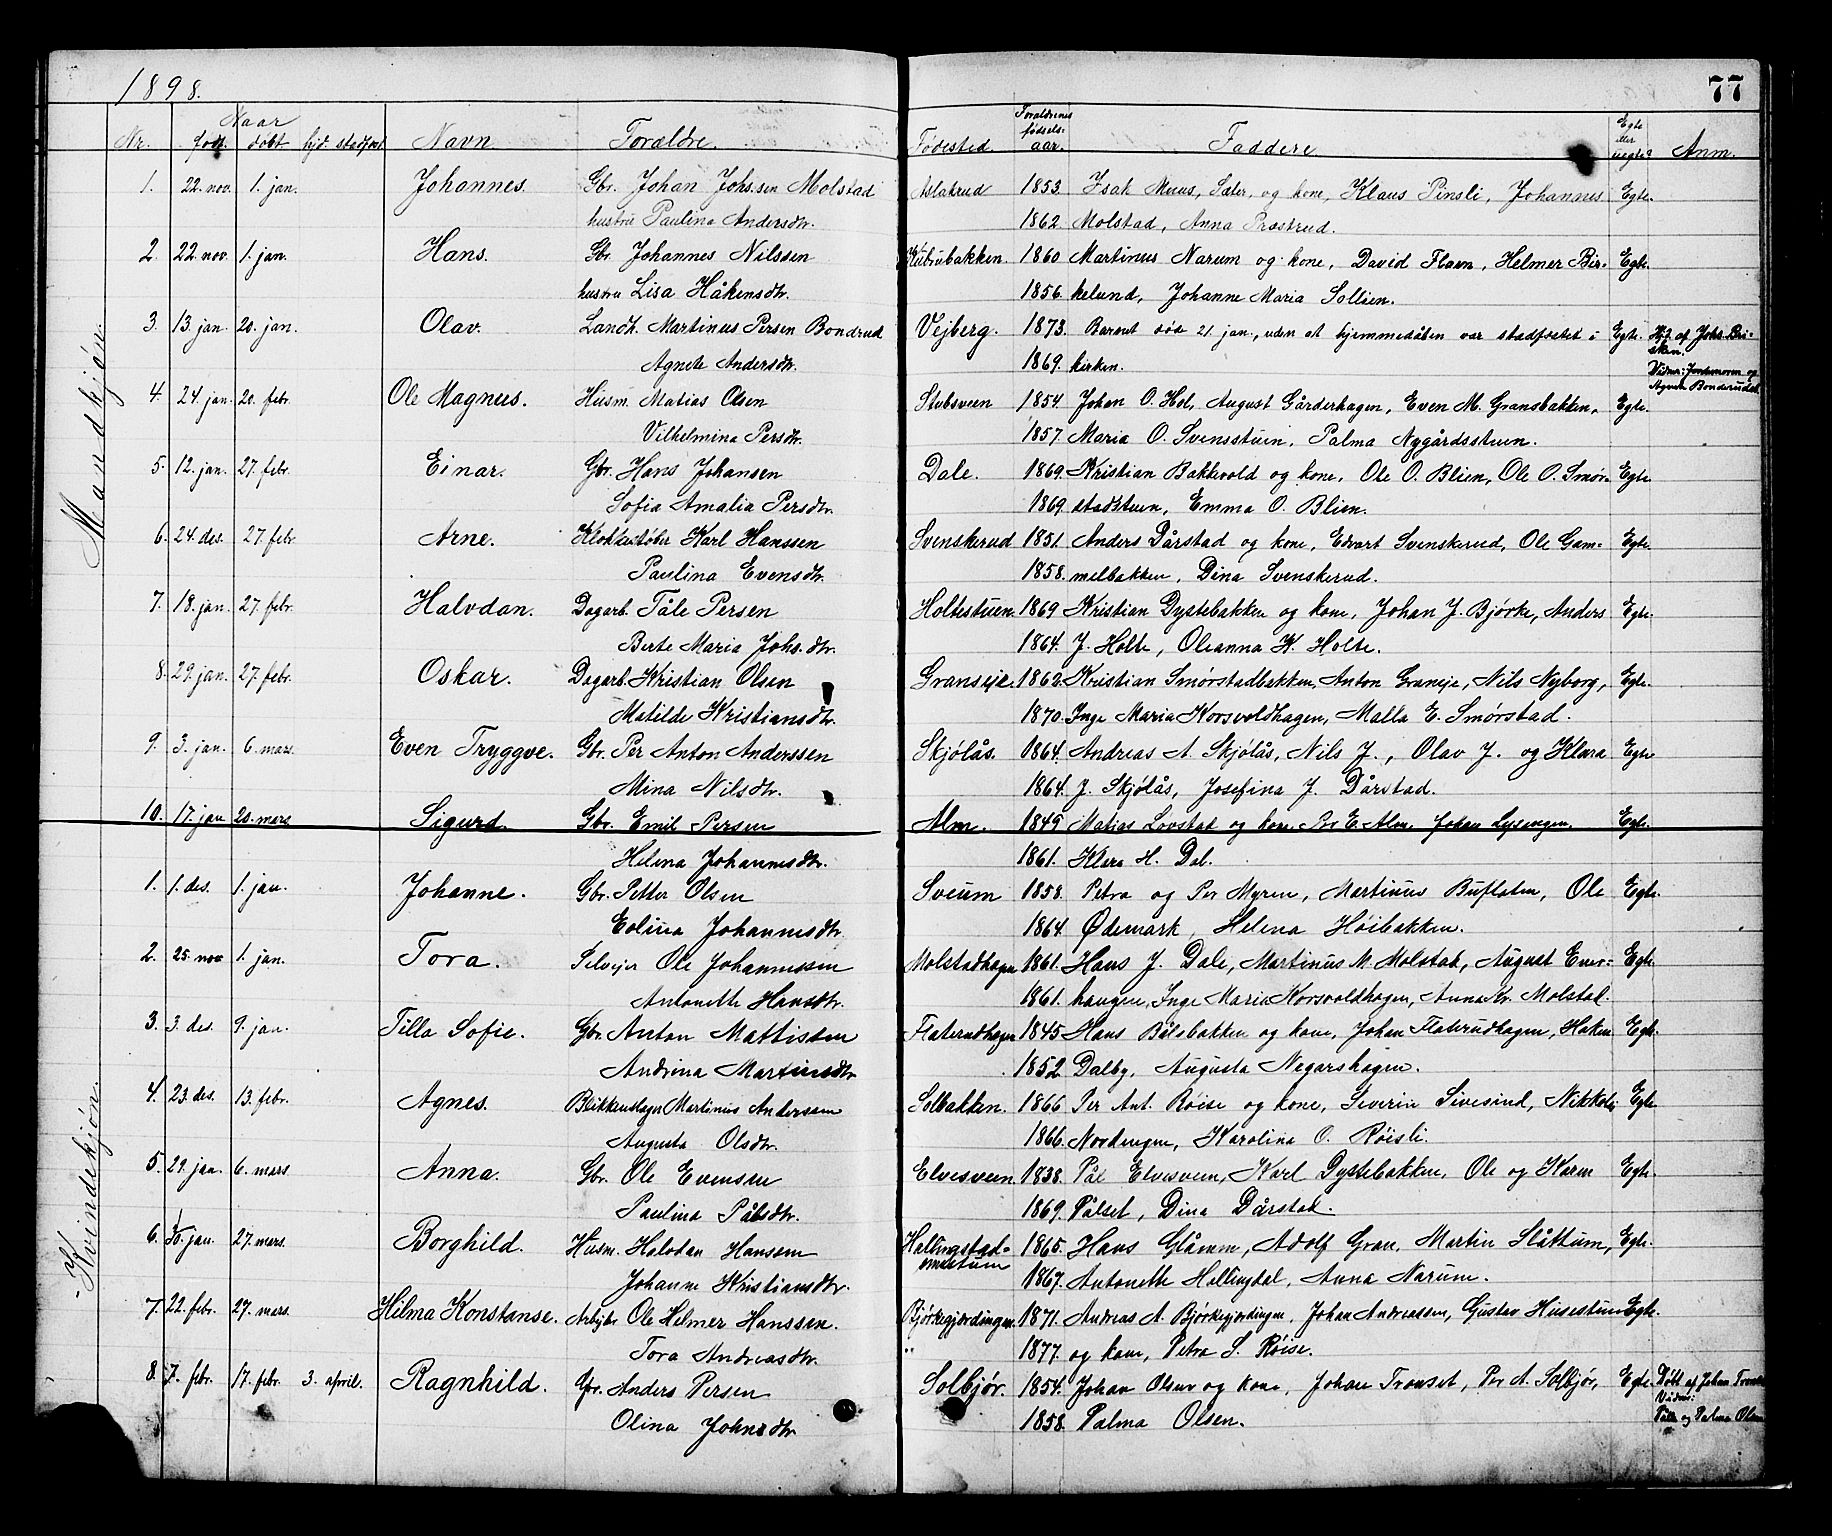 1898.
77
Naar
Nr. født. døbt hjd. stadfæst Navn Forældre. Fødested. Forældrenes fødsels-aar. Faddere Egte eller uegte? Anm.
Mandkjøn.
1. 22. nov. 1. jan. Johannes. Gbr. Johan Johs.sen Molstad Aslakrud 1853. Isak Muus, Sæter, og kone, Klaus Pinsli, Johannes Egte.
hustru Paulina Andersdtr. 1862. Molstad, Anna Præstrud.
2. 22. nov. 1. jan. Hans. Gbr. Johannes Nilssen Kubrubakken. 1860 Martinus Narum og kone, David Flaen, Helmer Bir- Egte.
hustru Lisa Håkensdtr. 1856. kelund, Johanne Maria Sollien.
3. 13. jan. 20. jan. Olav. Landh. Martinus Persen Bondrud Vejberg. 1873. Barnet død 21 jan., uden at hjemmedåben var stadfæstet i Egte. Hjd. af Johs. Bri-
sken.
Agnete Andersdtr. 1869. kirken. Vidner: Jordemoren og
Agnete Bonderud
4. 24. jan. 20. febr. Ole Magnus. Husm. Matias Olsen Stubsveen 1854. Johan O. Hol, August Gårderhagen, Even M. Gransbakken, Egte.
Vilhelmina Persdtr. 1857. Maria O. Svensstuen, Palma Nygårdsstuen.
5. 12. jan. 27. febr. Einar. Gbr. Hans Johansen Dale. 1869. Kristian Bakkevold og kone, Ole O. Blien, Ole O. Smør- Egte.
Sofia Amalia Persdtr. 1869. stadstuen, Emma O. Blien.
6. 24. des. 27. febr. Arne. Klokkestøber Karl Hanssen Svenskerud 1851. Anders Dårstad og kone, Edvart Svenskerud, Ole Gam- Egte.
Paulina Evensdtr. 1858. melbakken, Dina Svenskerud.
7. 18. jan. 27. febr. Halvdan. Dagarb. Tåle Persen Holtestuen. 1869 Kristian Dystebakken og kone, Johan J. Bjørke, Anders Egte.
Berte Maria Johs.dtr. 1864. J. Holte, Oleanna H. Holte.
8. 29. jan. 27. febr. Oskar. Dagarb. Kristian Olsen Granseje. 1862. Kristian Smørstadbakken, Anton Graneje, Nils Nyborg, Egte.
Matilde Kristiansdtr. 1870. Inge Maria Korsvoldhagen, Malla E. Smørstad.
9. 3. jan. 6. mars. Even Tryggve. Gbr. Per Anton Anderssen Skjølås. 1864. Andreas A. Skjølås, Nils J., Olav J. og Klara Egte
Mina Nilsdtr. 1864. J. Skjølås, Josefina J. Dårstad.
10. 17. jan 20. mars. Sigurd. Gbr. Emil Persen Alm. 1849 Matias Lovstad og kone, Per E. Alm, Johan Lysengen, Egte.
Helena Johannesdtr. 1861. Klara H. Dal.
Kvindekjøn.
1. 1. des. 1. jan. Johanne. Gbr. Petter Olsen Sveum 1858. Petra og Per Myren, Martinus Buflaten, Ole Egte.
Eolina Johannesdtr. 1864. Ødemark, Helena Høibakken.
2. 25. nov 1. jan. Tora. Selvejer Ole Johannessen Molstadhagen 1861. Hans J. Dale, Martinus M. Molstad, August Ener- Egte.
Antonette Hansdtr. 1861. haugen, Inge Maria Korsvoldhagen, Anna Kr. Molstad.
3. 3. des. 9. jan. Tilla Sofie. Gbr. Anton Mattissen Flaterudhagen 1845 Hans Bålsbakken og kone, Johan Flaterudhagen, Haken Egte.
Andrina Martinsdtr 1852 Dalby, Augusta Negarshagen.
4. 23. des. 13. febr. Agnes. Blikkenslager Martinus Andersen Solbakken. 1866 Per Ant. Røise og kone, Severin Sivesind, Nikkolai Egte.
Augusta Olsdtr. 1866. Nordengen, Karolina O. Røisli.
5. 29. jan. 6. mars. Anna. Gbr. Ole Evensen Elvesveen. 1838. Pål Elvesveen, Karl Dystebakken, Ole og Karen Egte.
Paulina Pålsdtr. 1869. Pålset, Dina Dårstad.
6. jan. 27. mars. Borghild. Husm. Halvdan Hansen Hallingstad- 1865. Hans Glåmm, Adolf Gran, Martin Slåttum, Egte.
Johanne Kristiansdtr. 1867. Antonette Hallingdal, Anna Narum.
7. 22. febr. 27. mars. Hilma Konstanse. Arbejder Ole Helmer Hanssen. Bjørkegjordingen. 1871. Andreas A. Bjørkegjordingen, Johan Andreassen, Gustav Husestuen Egte.
Tora Andreasdtr. " 1877. og kone, Petra S. Røise.
8. 7. febr. 17. febr 3. april. Ragnhild. Gbr. Anders Persen Solbjør. 1854. Johan Olsen og kone, Johan Transet, Per A. Solbjør, Egte Døbt af Johan
Vidner:
Olina Johnsdtr 1858. Palma Olsen. og Palma Olsen